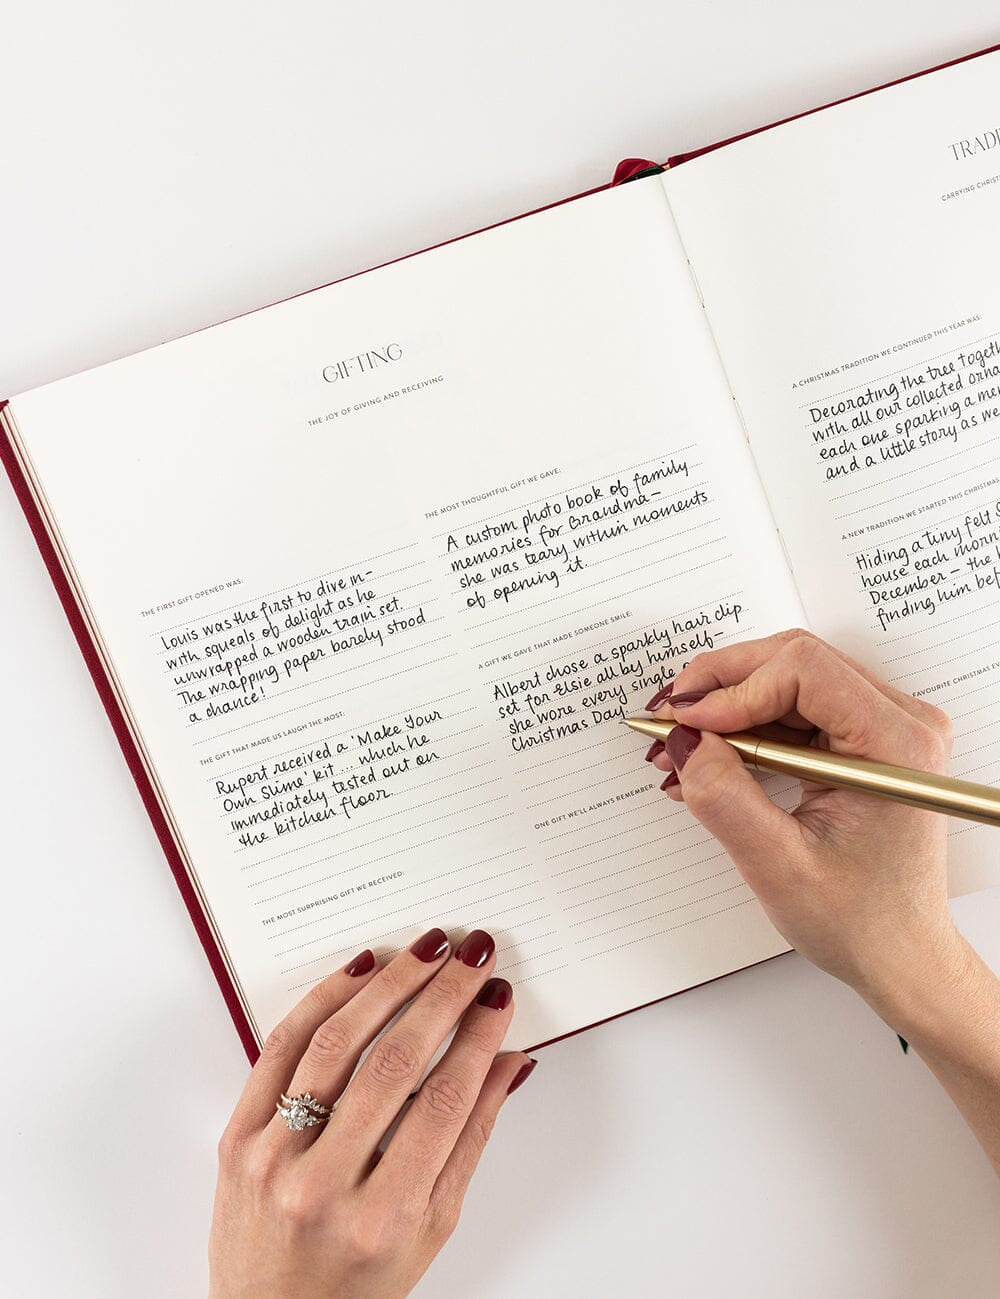 GIFTING
THE JOY OF GIVING AND RECEIVING
THE FIRST GIFT OPENED WAS:
Louis was the first to dive in-
with squeals of delight as he
unwrapped a wooden train set.
The wrapping paper barely stood
a chance!
THE GIFT THAT MADE US LAUGH THE MOST:
Rupert received a 'Make Your
Own Slime' kit... which he
immediately tested out on
the kitchen floor.
THE MOST SURPRISING GIFT WE RECEIVED:
THE MOST THOUGHTFUL GIFT WE GAVE:
A custom photo book of family
memories for Grandma-
she was teary within moments
of opening it.
A GIFT WE GAVE THAT MADE SOMEONE SMILE:
Albert chose a sparkly hair clip
set for Elsie all by himself-
she wore every single
Christmas Day.
ONE GIFT WE'LL ALWAYS REMEMBER:
CARRYING
A CHRISTMAS TRADITION WE CONTINUED THIS YEAR WAS:
Decorating the tree
with all our collected
each one sparking a
and a little story as
A NEW TRADITION WE STARTED THIS CHRISTMAS
Hiding a tiny felt
house each
December - the
finding him
FAVOURITE CHRISTMAS